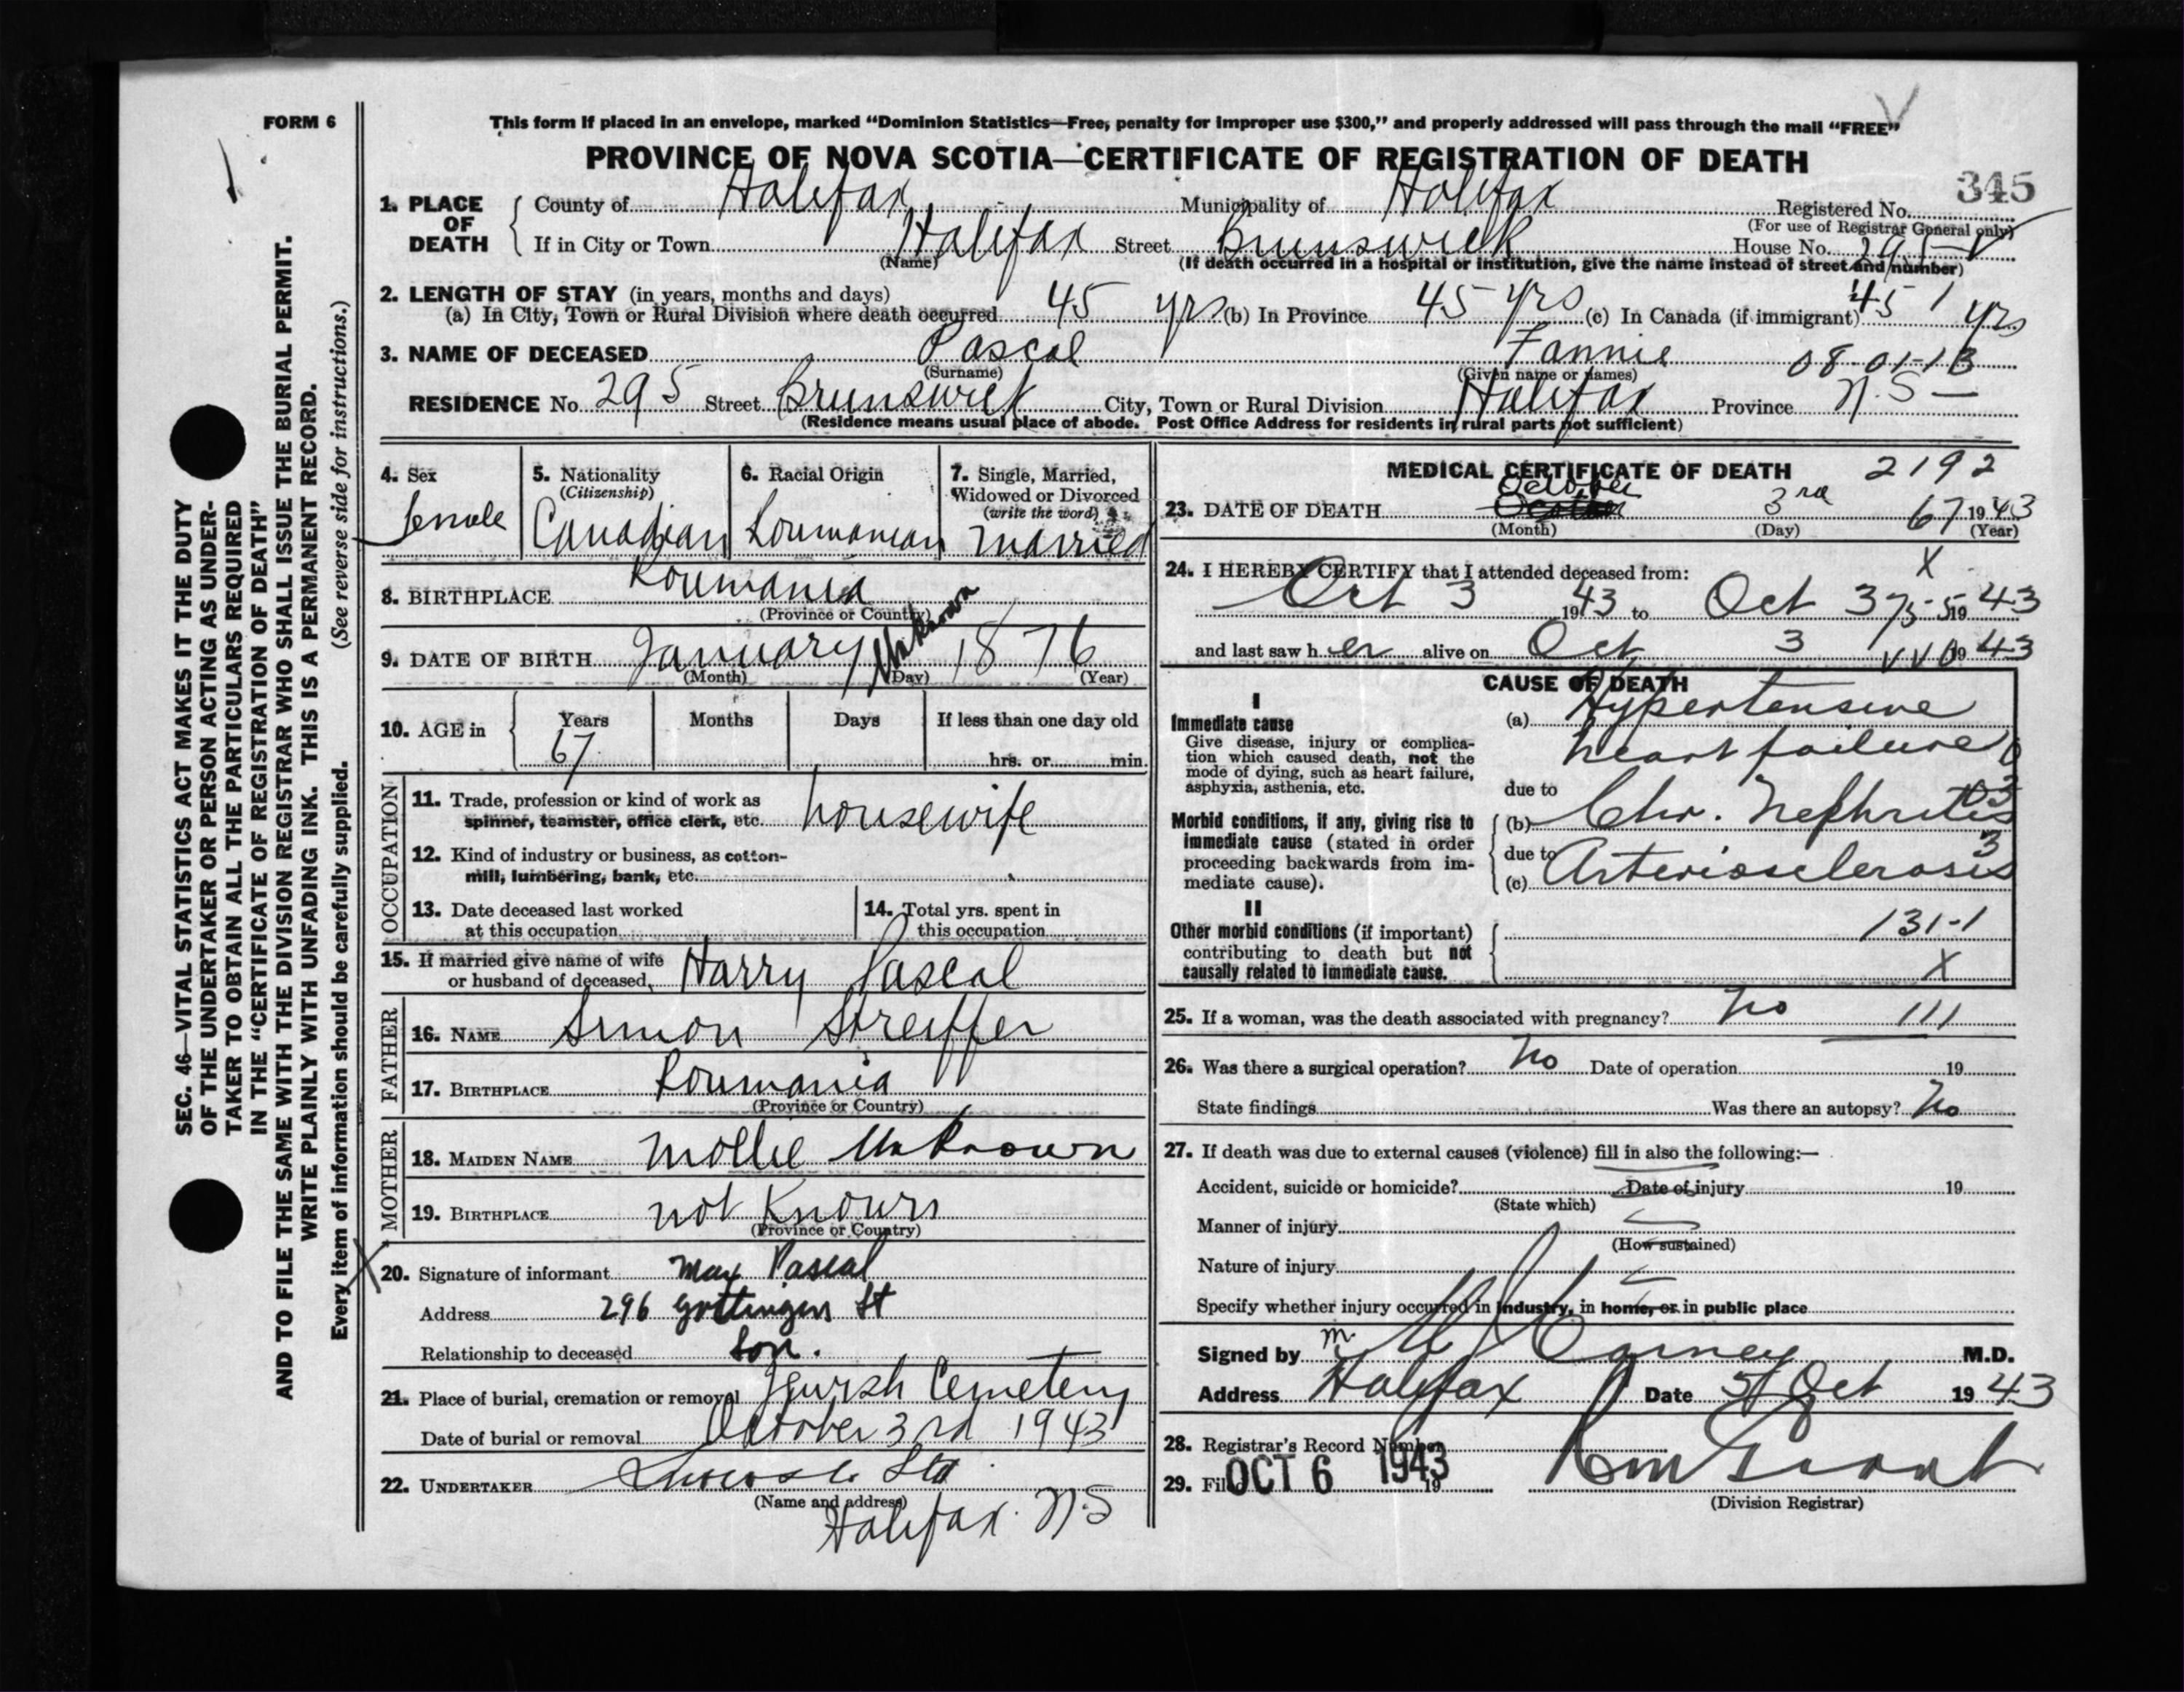 FORM 6
This form if placed in an envelope, marked “Dominion Statistics—Free, penalty for improper use $300,” and properly addressed will pass through the mail “FREE”
PROVINCE OF NOVA SCOTIA—CERTIFICATE OF REGISTRATION OF DEATH
345
1. PLACE OF DEATH
County of Halifax Municipality of Halifax Registered No.
(For use of Registrar General only)
If in City or Town Halifax Street Brunswick House No. 295
(Name) (If death occurred in a hospital or institution, give the name instead of street and number)
2. LENGTH OF STAY (in years, months and days)
(a) In City, Town or Rural Division where death occurred 45 yrs (b) In Province 45 yrs (c) In Canada (if immigrant) 45 yrs
3. NAME OF DECEASED Pascal Fannie 08-01-13
(Surname) (Given name or names)
RESIDENCE No. 295 Street Brunswick City, Town or Rural Division Halifax Province N.S—
(Residence means usual place of abode. Post Office Address for residents in rural parts not sufficient)
4. Sex
female
5. Nationality
(Citizenship)
Canadian
6. Racial Origin
Roumanian
7. Single, Married,
Widowed or Divorced
(write the word)
Married
8. BIRTHPLACE Roumania
(Province or Country)
9. DATE OF BIRTH January Unknown 1876
(Month) (Day) (Year)
10. AGE in Years Months Days If less than one day old
67 hrs. or min.
OCCUPATION
11. Trade, profession or kind of work as
spinner, teamster, office clerk, etc. housewife
12. Kind of industry or business, as cotton-
mill, lumbering, bank, etc.
13. Date deceased last worked
at this occupation
14. Total yrs. spent in
this occupation
15. If married give name of wife
or husband of deceased, Harry Pascal
FATHER
16. NAME Simon Streiffer
17. BIRTHPLACE Roumania
(Province or Country)
MOTHER
18. MAIDEN NAME Mollie Unknown
19. BIRTHPLACE not Known
(Province or Country)
20. Signature of informant Max Pascal
Address 296 Gottingen St
Relationship to deceased Son.
21. Place of burial, cremation or removal Jewish Cemetery
Date of burial or removal October 3rd 1943
22. UNDERTAKER Ltd
(Name and address)
Halifax. N.S
MEDICAL CERTIFICATE OF DEATH 2192
23. DATE OF DEATH October 3rd 67 1943
(Month) (Day) (Year)
24. I HEREBY CERTIFY that I attended deceased from: X
Oct 3 1943 to Oct 3 1943
and last saw her alive on Oct 3 1943
CAUSE OF DEATH
I
Immediate cause
Give disease, injury or complica-
tion which caused death, not the
mode of dying, such as heart failure,
asphyxia, asthenia, etc.
(a) Hypertensive
heart failure
due to
Morbid conditions, if any, giving rise to
immediate cause (stated in order
proceeding backwards from im-
mediate cause).
(b) Chr. Nephritis
due to
(c) Arteriosclerosis
II
Other morbid conditions (if important)
contributing to death but not
causally related to immediate cause.
131-1
X
25. If a woman, was the death associated with pregnancy? No 111
26. Was there a surgical operation? No Date of operation 19
State findings Was there an autopsy? No
27. If death was due to external causes (violence) fill in also the following:—
Accident, suicide or homicide? Date of injury 19
(State which)
Manner of injury
(How sustained)
Nature of injury
Specify whether injury occurred in industry, in home, or in public place
Signed by Carney M.D.
Address Halifax Date 5 Oct 1943
28. Registrar's Record Number
29. Fil OCT 6 1943 19
(Division Registrar)
SEC. 46—VITAL STATISTICS ACT MAKES IT THE DUTY
OF THE UNDERTAKER OR PERSON ACTING AS UNDER-
TAKER TO OBTAIN ALL THE PARTICULARS REQUIRED
IN THE “CERTIFICATE OF REGISTRATION OF DEATH”
AND TO FILE THE SAME WITH THE DIVISION REGISTRAR WHO SHALL ISSUE THE BURIAL PERMIT.
WRITE PLAINLY WITH UNFADING INK. THIS IS A PERMANENT RECORD.
Every item of information should be carefully supplied. (See reverse side for instructions.)